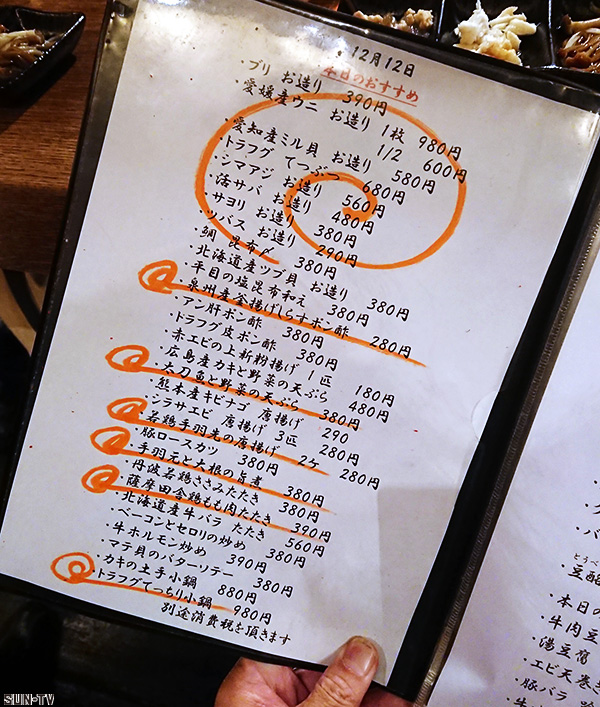 12月12日
本日のおすすめ
・ブリ お造り 390円
・愛媛産ウニ お造り 1枚 980円
1/2 600円
・愛知産ミル貝 お造り 580円
・トラフグ てっぷつ 680円
・シマアジ お造り 560円
・活サバ お造り 480円
・サヨリ お造り 380円
・ツバス お造り 290円
・鯛 昆布〆 380円
・北海道産ツブ貝 お造り 380円
・平目の塩昆布和え 380円
・泉州産釜揚げしらすポン酢 280円
・アン肝ポン酢 380円
・トラフグ皮ポン酢 380円
・赤エビの上新粉揚げ 1匹 180円
・広島産カキと野菜の天ぷら 480円
・太刀魚と野菜の天ぷら 380円
・熊本産キビナゴ 唐揚げ 290
・シラサエビ 唐揚げ 3匹 280円
・若鶏手羽先の唐揚げ 2ケ 280円
・豚ロースカツ 380円
・手羽元と大根の旨煮 380円
・丹波若鶏ささみたたき 380円
・薩摩田舎鶏もも肉たたき 390円
・北海道産牛バラ たたき 560円
・ベーコンとセロリの炒め 380円
・牛ホルモン炒め 390円
・マテ貝のバターソテー 380円
・カキの土手小鍋 880円
・トラフグてっちり小鍋 980円
別途消費税を頂きます
とうべ
・豆酩
・本日の
・牛肉豆
・湯豆腐
・エビ天巻き
・豚バラ
SUN-TV